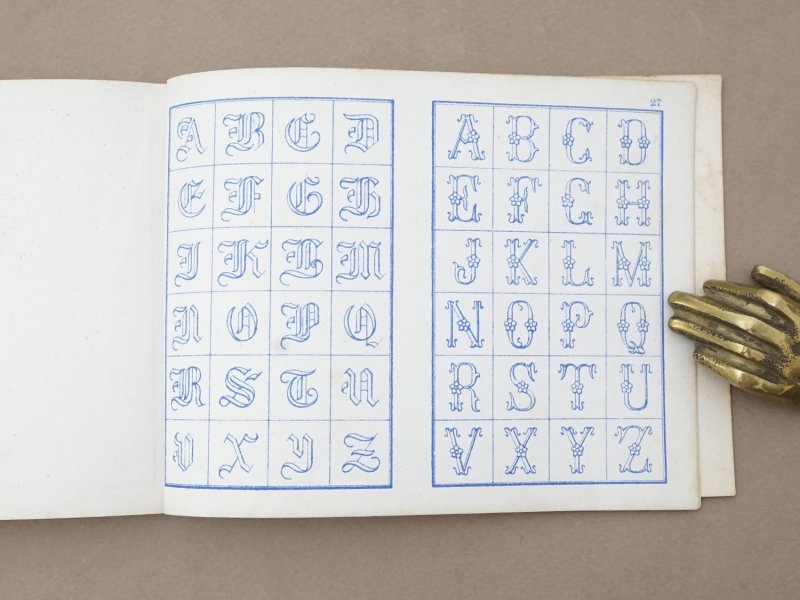 27
A B C D
E F G H
I K L M
N O P Q
R S T U
V X Y Z
A B C D
E F G H
J K L M
N O P Q
R S T U
V X Y Z